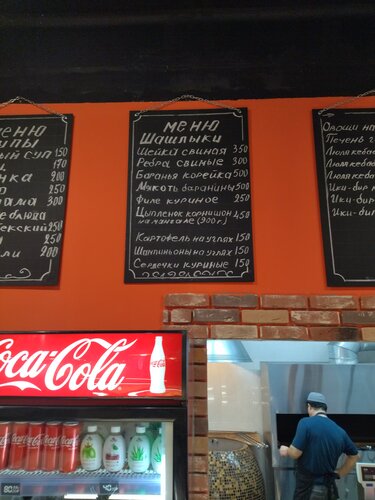 МЕНЮ
СУПЫ
СУП 150
170
200
250
300
250
250
200
МЕНЮ
ШАШЛЫКИ
ШЕЙКА СВИНАЯ 350
РЕБРА СВИНЫЕ 300
БАРАНЬЯ КОРЕЙКА 500
МЯКОТЬ БАРАНИНЫ 500
ФИЛЕ КУРИНОЕ 250
ЦЫПЛЕНОК КОРНИШОН 450
НА МАНГАЛЕ (900 г.)
КАРТОФЕЛЬ НА УГЛЯХ 150
ШАМПИНЬОНЫ НА УГЛЯХ 150
СЕРДЕЧКИ КУРИНЫЕ 150
ОВОЩИ НА
ПЕЧЕНЬ
ЛЮЛЯ КЕБА
ЛЮЛЯ КЕБА
ЛЮЛЯ КЕБА
ИКИ-БИР
ИКИ-БИР
ИКИ-БИР
Coca-Cola